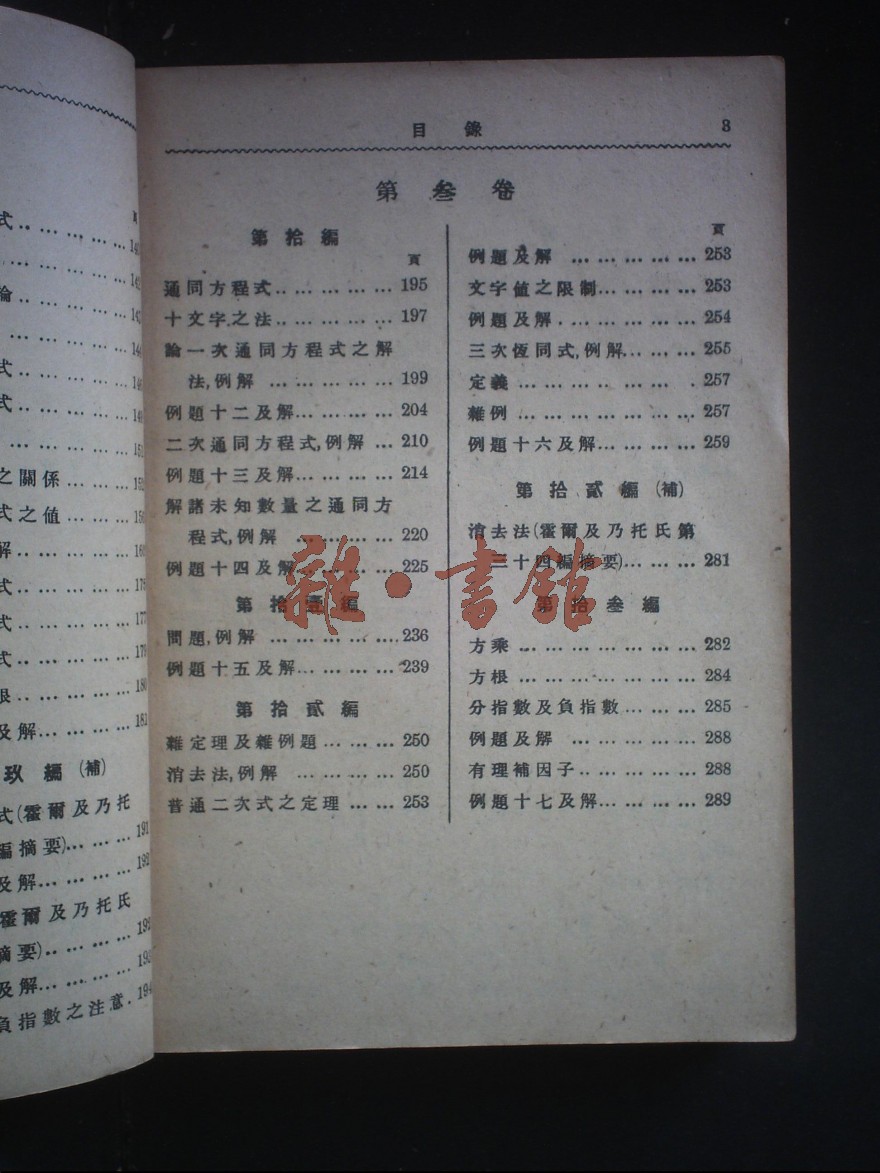 式 … … … … …
頁
論 … … … … …
之關係 … … …
式之值 … … …
解 … … … … …
及解 … … … … 181
玖編(補)
式(霍爾及乃托
編摘要) … … … 191
及解 … … … … 192
霍爾及乃托氏
摘要) … … … …
及解 … … … … 193
負指數之注意 . 194
目錄 3
第叁卷
第拾編
頁
通同方程式 … … … … … 195
十文字之法 … … … … … 197
論一次通同方程式之解
法,例解 … … … … … 199
例題十二及解 … … … … 204
二次通同方程式,例解 … 210
例題十三及解 … … … … 214
解諸未知數量之通同方
程式,例解 … … … … 220
例題十四及解 … … … … 225
第拾壹編
問題,例解 … … … … … 236
例題十五及解 … … … … 239
第拾貳編
雜定理及雜例題 … … … 250
消去法,例解 … … … … 250
普通二次式之定理 … … 253
頁
例題及解 … … … … … 253
文字值之限制 … … … … 253
例題及解 … … … … … 254
三次恆同式,例解 … … … 255
定義 … … … … … … 257
雜例 … … … … … … 257
例題十六及解 … … … … 259
第拾貳編(補)
消去法(霍爾及乃托氏第
三十四編摘要) … … … 281
第拾叁編
方乘 … … … … … … 282
方根 … … … … … … 284
分指數及負指數 … … … 285
例題及解 … … … … … 288
有理補因子 … … … … … 288
例題十七及解 … … … … 289
雜·書館